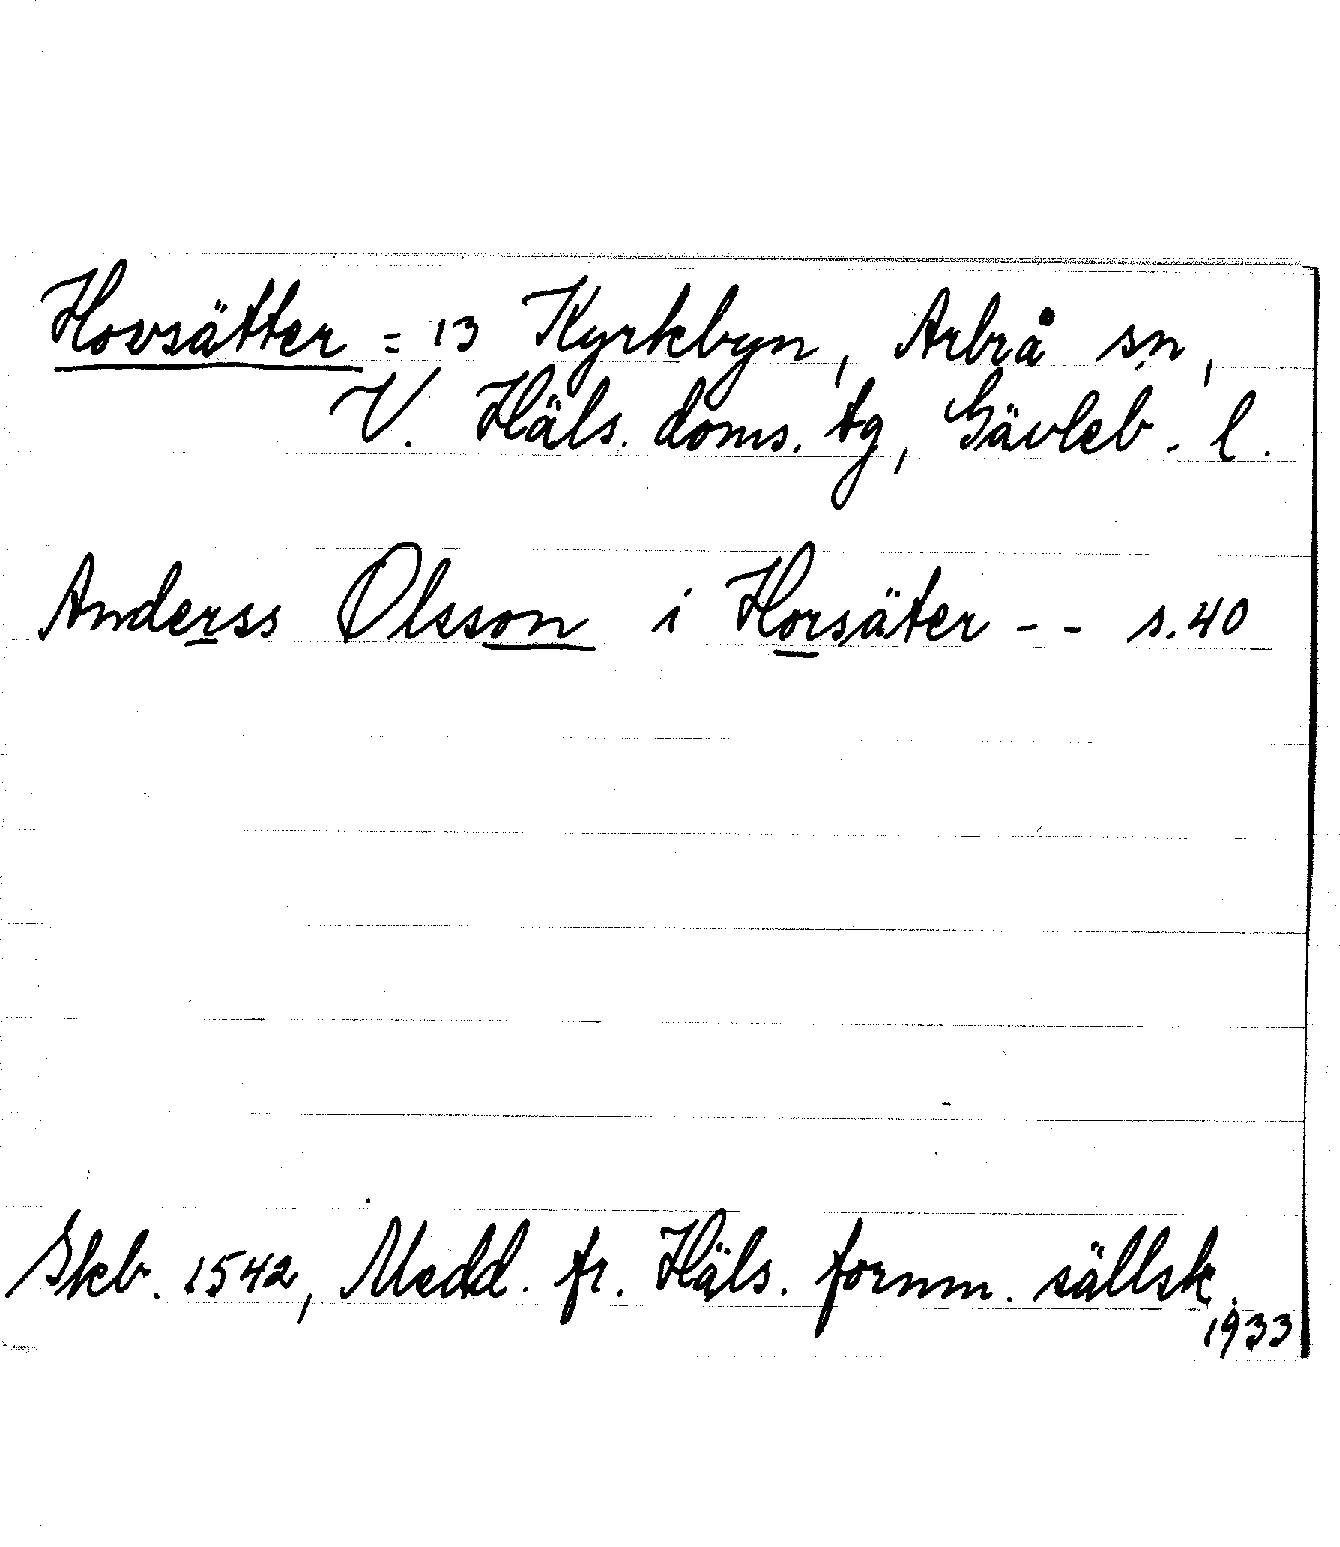 Hovsätter = 13 Kyrkbyn, Arbrå sn,
V. Häls. doms. tg, Gävleb. l.
Anderss Olsson i Horsäter - - s. 40
Skb. 1542, Medd. fr. Häls. fornm. sällsk.
1933